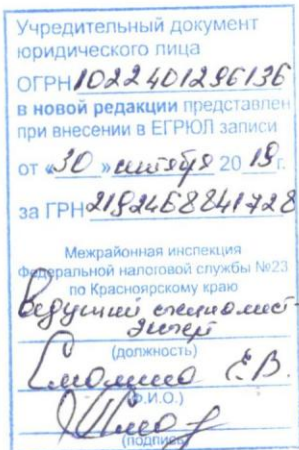 Учредительный документ
юридического лица
ОГРН 1022401296136
в новой редакции представлен
при внесении в ЕГРЮЛ записи
от «30» октября 2019г.
за ГРН 2192468841728
Межрайонная инспекция
Федеральной налоговой службы №23
по Красноярскому краю
Ведущий специалист-
эксперт
(должность)
Е.В.
(Ф.И.О.)
(подпись)